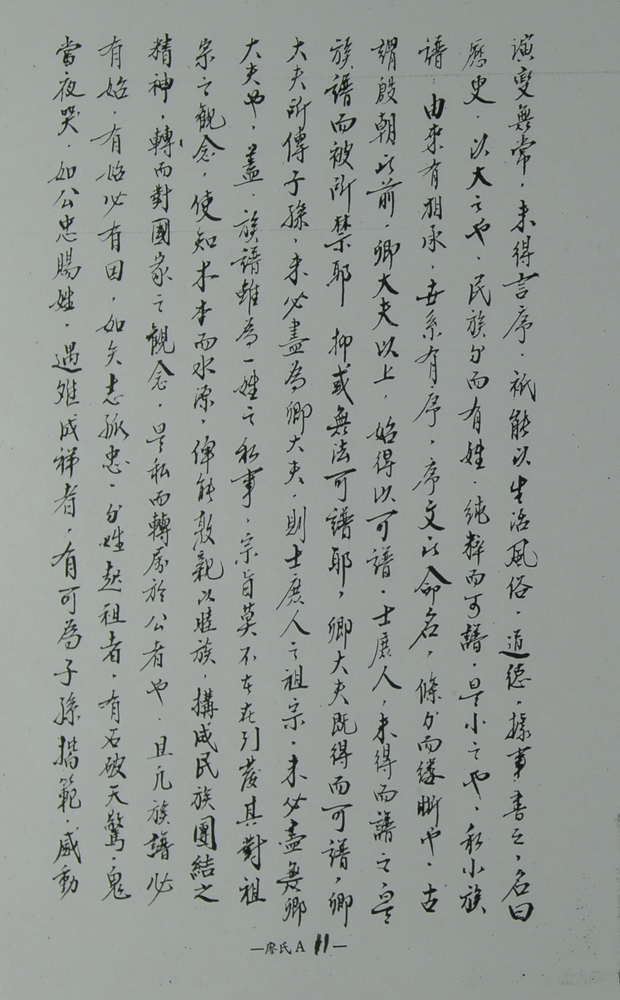 演變無常，未得言序．祇能以生活風俗．道德．據事書之，名曰
歷史．以大之也．民族分而有姓．純粹而可譜．是小之也．私小族
譜．由來有相承．世系有序．序文以命名，條分而縷晰也．古
謂殷朝以前．卿大夫以上，始得以可譜．士庶人，未得而譜之是
族譜而被所禁耶　抑或無法可譜耶，卿大夫既得而可譜，卿
大夫所傳子孫，未必盡為卿大夫．則士庶人之祖宗．未必盡無卿
大夫也．蓋．族譜雖為一姓之私事，宗旨莫不在在引發其對祖
宗之觀念，使知木本而水源，俾能敦親以睦族，構成民族團結之
精神，轉而對國家之觀念．是私而轉屬於公者也．且凡族譜必
有始．有始必有因，如矢志孤忠．分姓起祖者，有石破天驚．鬼
當夜哭．如公忠賜姓．遇難成祥者，有可為子孫楷範．感動
—廖氏A 11—